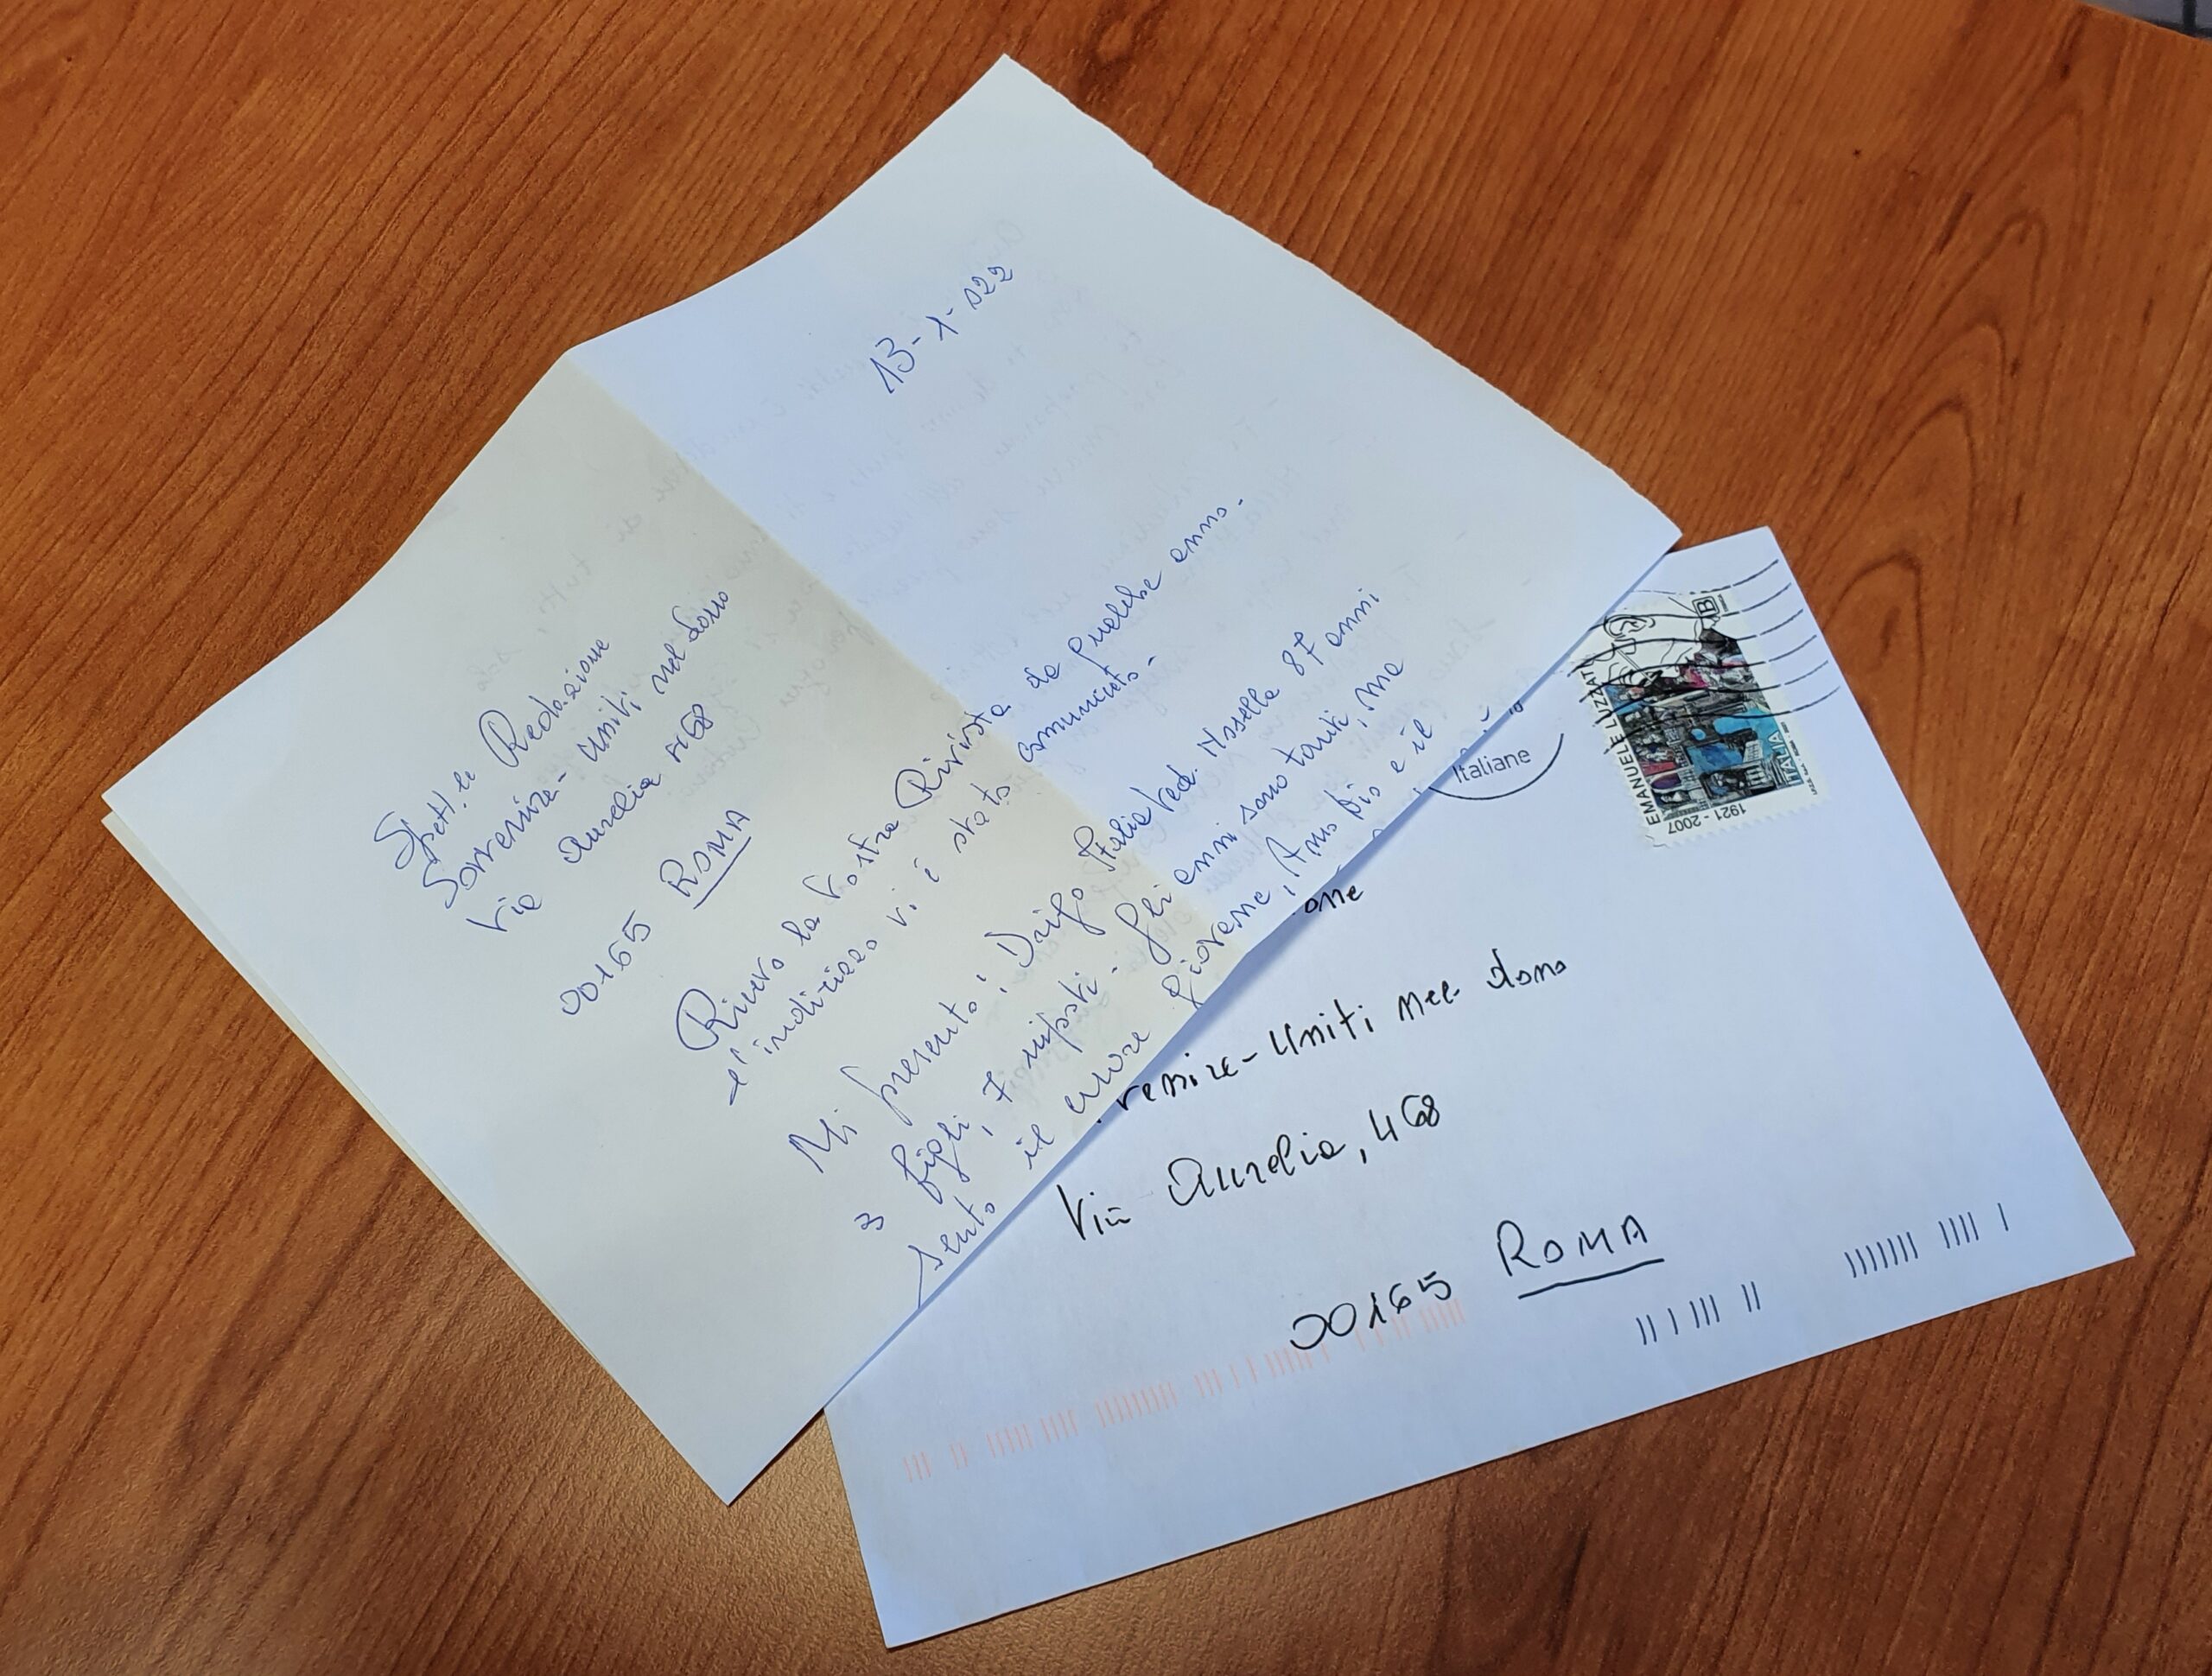 13-1-022
Spett.le Redazione
Sovvenire - Uniti nel dono
Via Aurelia 468
00165 ROMA
Ricevo la Vostra Rivista da qualche anno -
e l'indirizzo vi è stato comunicato -
Mi presento: Drigo Italia Ved. Masella 87 anni
3 figli, 7 nipoti - Gli anni sono tanti, ma
sento il cuore giovane, Amo Dio e il
one
venire - Uniti nel dono
Via Aurelia, 468
00165 ROMA
Italiane
EMANUELE LUZZATI
1921 - 2007
ITALIA
B